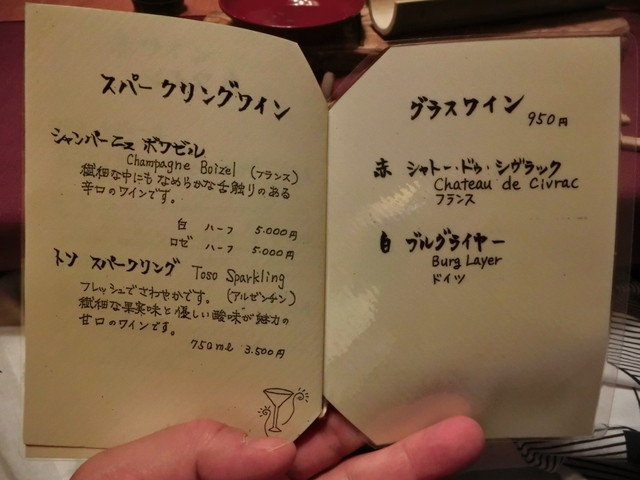 スパークリングワイン
シャンパーニュ ボワゼル
Champagne Boizel (フランス)
繊細な中にもなめらかな舌触りのある
辛口のワインです。
白 ハーフ 5.000円
ロゼ ハーフ 5.000円
トソ スパークリング Toso Sparkling
フレッシュでさわやかです。(アルゼンチン)
繊細な果実味と優しい酸味が魅力の
甘口のワインです。
750ml 3.500円
グラスワイン
950円
赤 シャトー・ドゥ・シヴラック
Chateau de Civrac
フランス
白 ブルグライヤー
Burg Layer
ドイツ